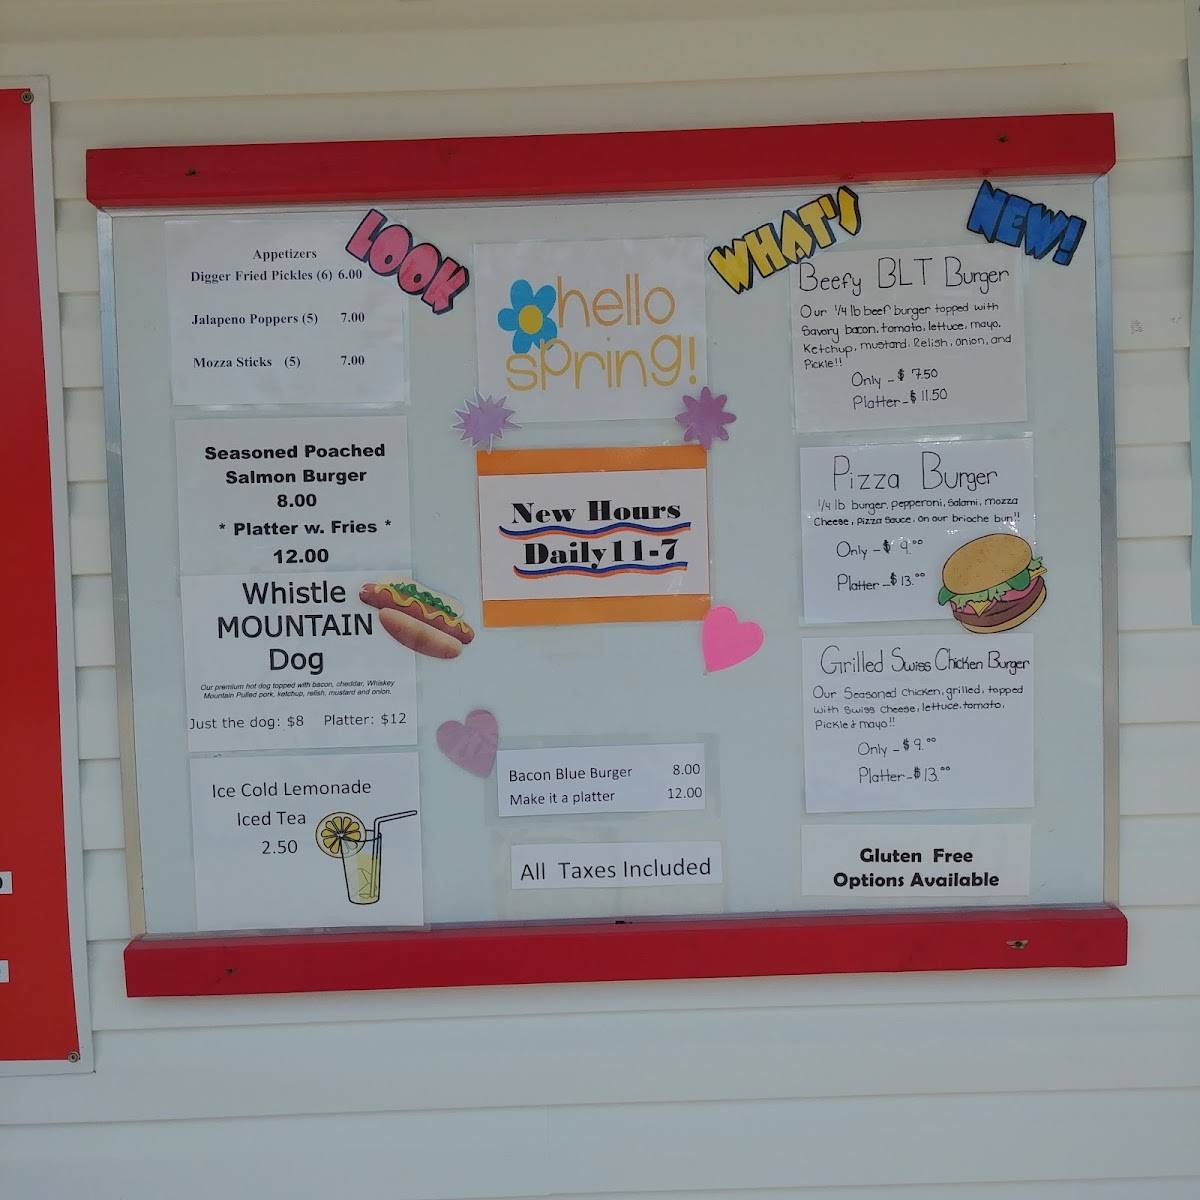 LOOK
WHAT'S
NEW!
Appetizers
Digger Fried Pickles (6) 6.00
Jalapeno Poppers (5) 7.00
Mozza Sticks (5) 7.00
Seasoned Poached
Salmon Burger
8.00
* Platter w. Fries *
12.00
Whistle
MOUNTAIN
Dog
Our premium hot dog topped with bacon, cheddar, Whiskey
Mountain Pulled pork, ketchup, relish, mustard and onion.
Just the dog: $8 Platter: $12
Ice Cold Lemonade
Iced Tea
2.50
hello
spring!
New Hours
Daily 11-7
Bacon Blue Burger 8.00
Make it a platter 12.00
All Taxes Included
Beefy BLT Burger
Our 1/4 lb beef burger topped with
Savory bacon, tomato, lettuce, mayo,
Ketchup, mustard, Relish, onion, and
Pickle!!
Only - $ 7.50
Platter - $ 11.50
Pizza Burger
1/4 lb burger, pepperoni, Salami, mozza
Cheese, Pizza Sauce, on our brioche bun!!
Only - $ 9.00
Platter - $ 13.00
Grilled Swiss Chicken Burger
Our Seasoned Chicken, grilled, topped
with Swiss Cheese, lettuce, tomato,
Pickle & mayo!!
Only - $ 9.00
Platter - $ 13.00
Gluten Free
Options Available